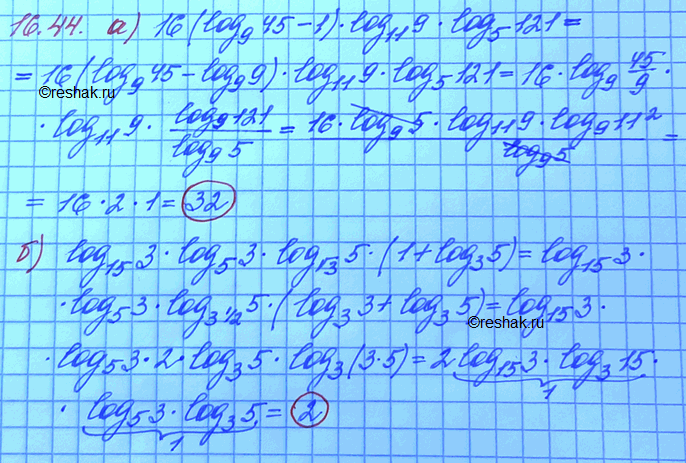 16.44. а) 16(log₉45-1)·log₁₁9·log₅121=
=16(log₉45-log₉9)·log₁₁9·log₅121=16·log₉ 45/9 ·
©reshak.ru
·log₁₁9· log₉121/log₉5 = 16·log₉5·log₁₁9·log₉11²/log₉5 =
= 16·2·1= 32
б) log₁₅3·log₅3·log_√3 5·(1+log₃5)=log₁₅3·
·log₅3·log_3^1/2 5·(log₃3+log₃5)=log₁₅3·
©reshak.ru
·log₅3·2·log₃5·log₃(3·5)=2log₁₅3·log₃15·
1
· log₅3·log₃5= 2
1